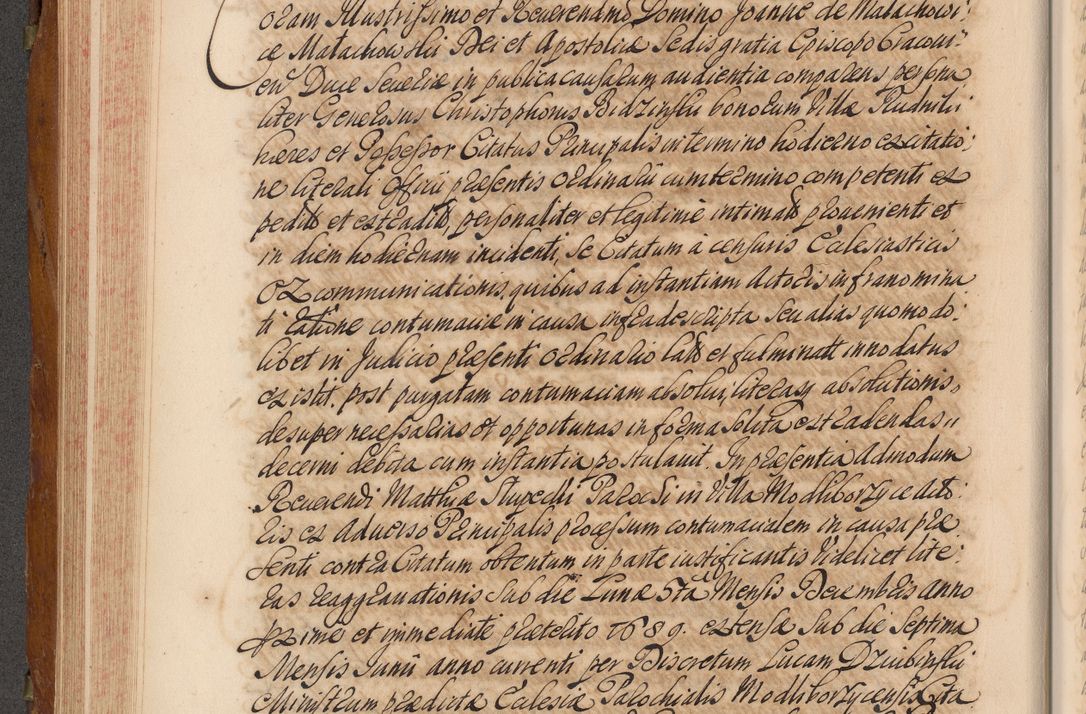 oram Illustrissimo et Reuerendmo Domino Joanne de Małachowi,
ce Małachowski Dei et Apostolicæ Sedis gratia Episcopo Cracoui=
en Duce Seueriæ in publica causarum audientia comparens persona
liter Generosus Christophorus Bidzinski bonorum Villæ Rudniki
hæres et Possessor Citatus Principalis in termino hodierno ex citatio,
ne literali Officii præsentis Ordinarii cum termino competenti ex
pedita et extradita, personaliter et legitimè intimata proueniente et
in diem hodiernam incidenti, se Citatum à censuris Ecclesiasticis
excommunicationis, quibus ad instantiam Actoris infranomina
ti ratione contumaciæ in causa infradescripta Seu alias quomodo,
libet in Judicio præsenti Ordinario lata et fulminata innodatus
existit. post purgatam contumaciam absolui, literasq absolutionis,
desuper necessarias et opportunas in forma solita extradendas,,
decerni debita cum instantia postulauit. In præsentia Admodum
Reuerendi Matthiæ Parochi in Villa Modliborzyce Acto:
ris ex aduerso Principalis processum contumacialem in causa præ
senti contra Citatum obtentum in parte iustificantis Videlicet lite:
ras reaggrauationis sub die Lunæ 5ta Mensis Decembris Anno
proximè et immediatè præterito 1689. extensa sub die Septima
Mensis Janii anno currenti per Discretum Lucam Dziubinski
Ministrum prædictæ Ecclesiæ Parochialis Modliborzycensis ita